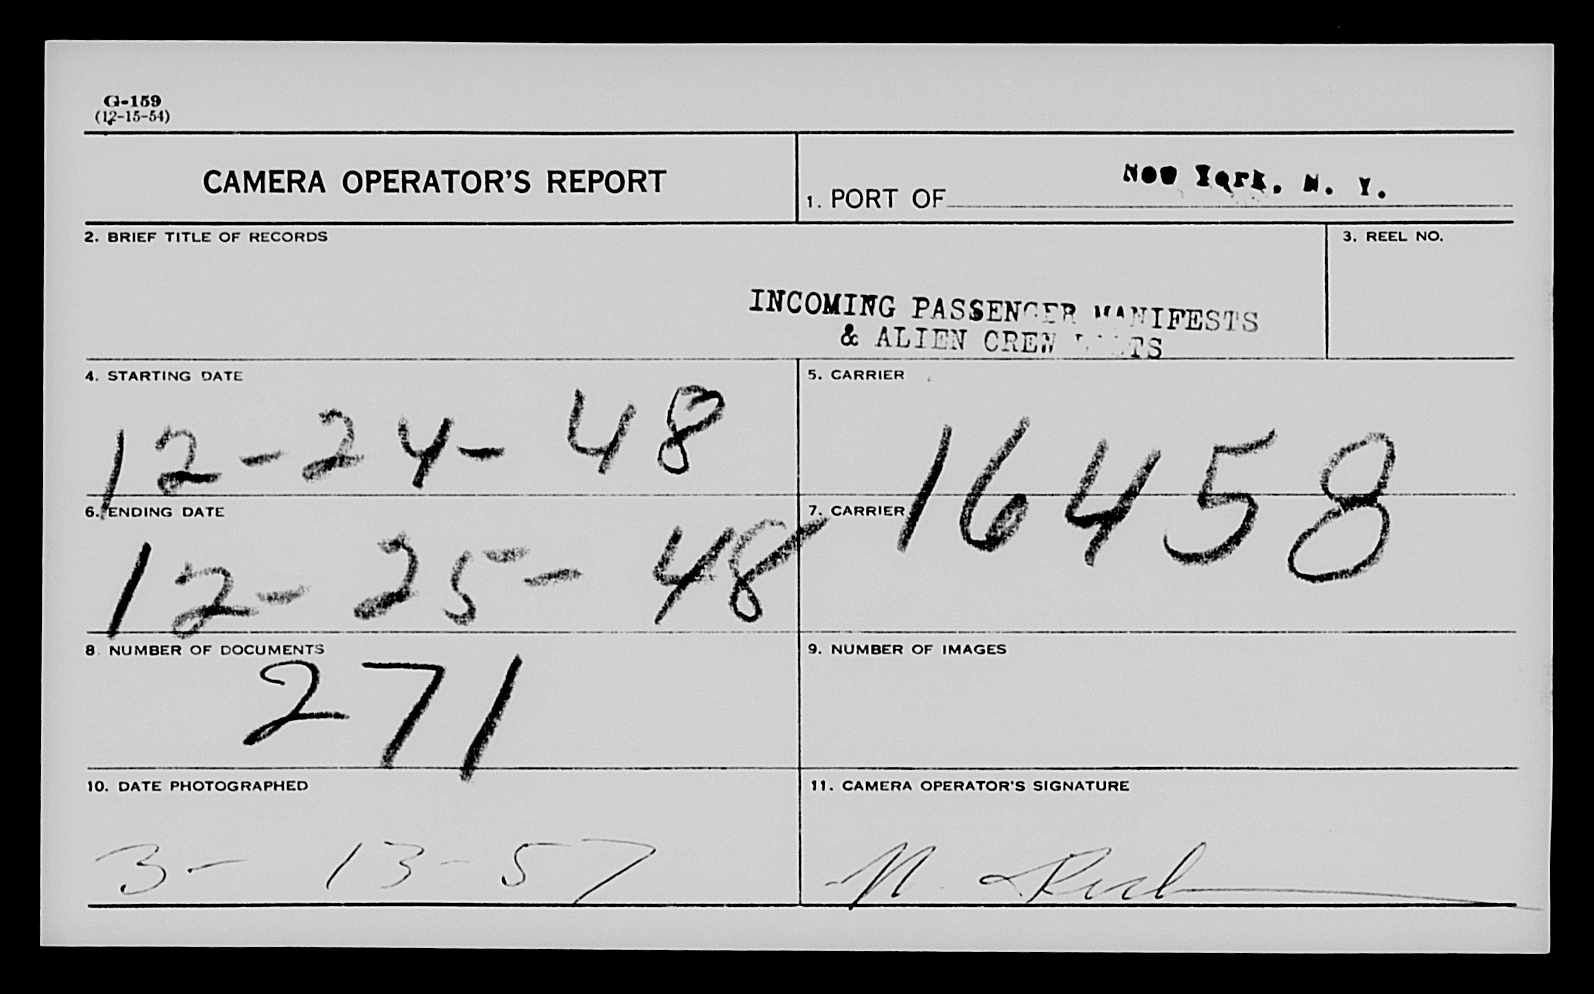 G-159
(12-15-54)
CAMERA OPERATOR'S REPORT
1. PORT OF New York, N. Y.
2. BRIEF TITLE OF RECORDS
3. REEL NO.
INCOMING PASSENGER MANIFESTS
& ALIEN CREW LISTS
4. STARTING DATE
12-24-48
5. CARRIER
16458
6. ENDING DATE
12-25-48
7. CARRIER
8. NUMBER OF DOCUMENTS
271
9. NUMBER OF IMAGES
10. DATE PHOTOGRAPHED
3-13-57
11. CAMERA OPERATOR'S SIGNATURE